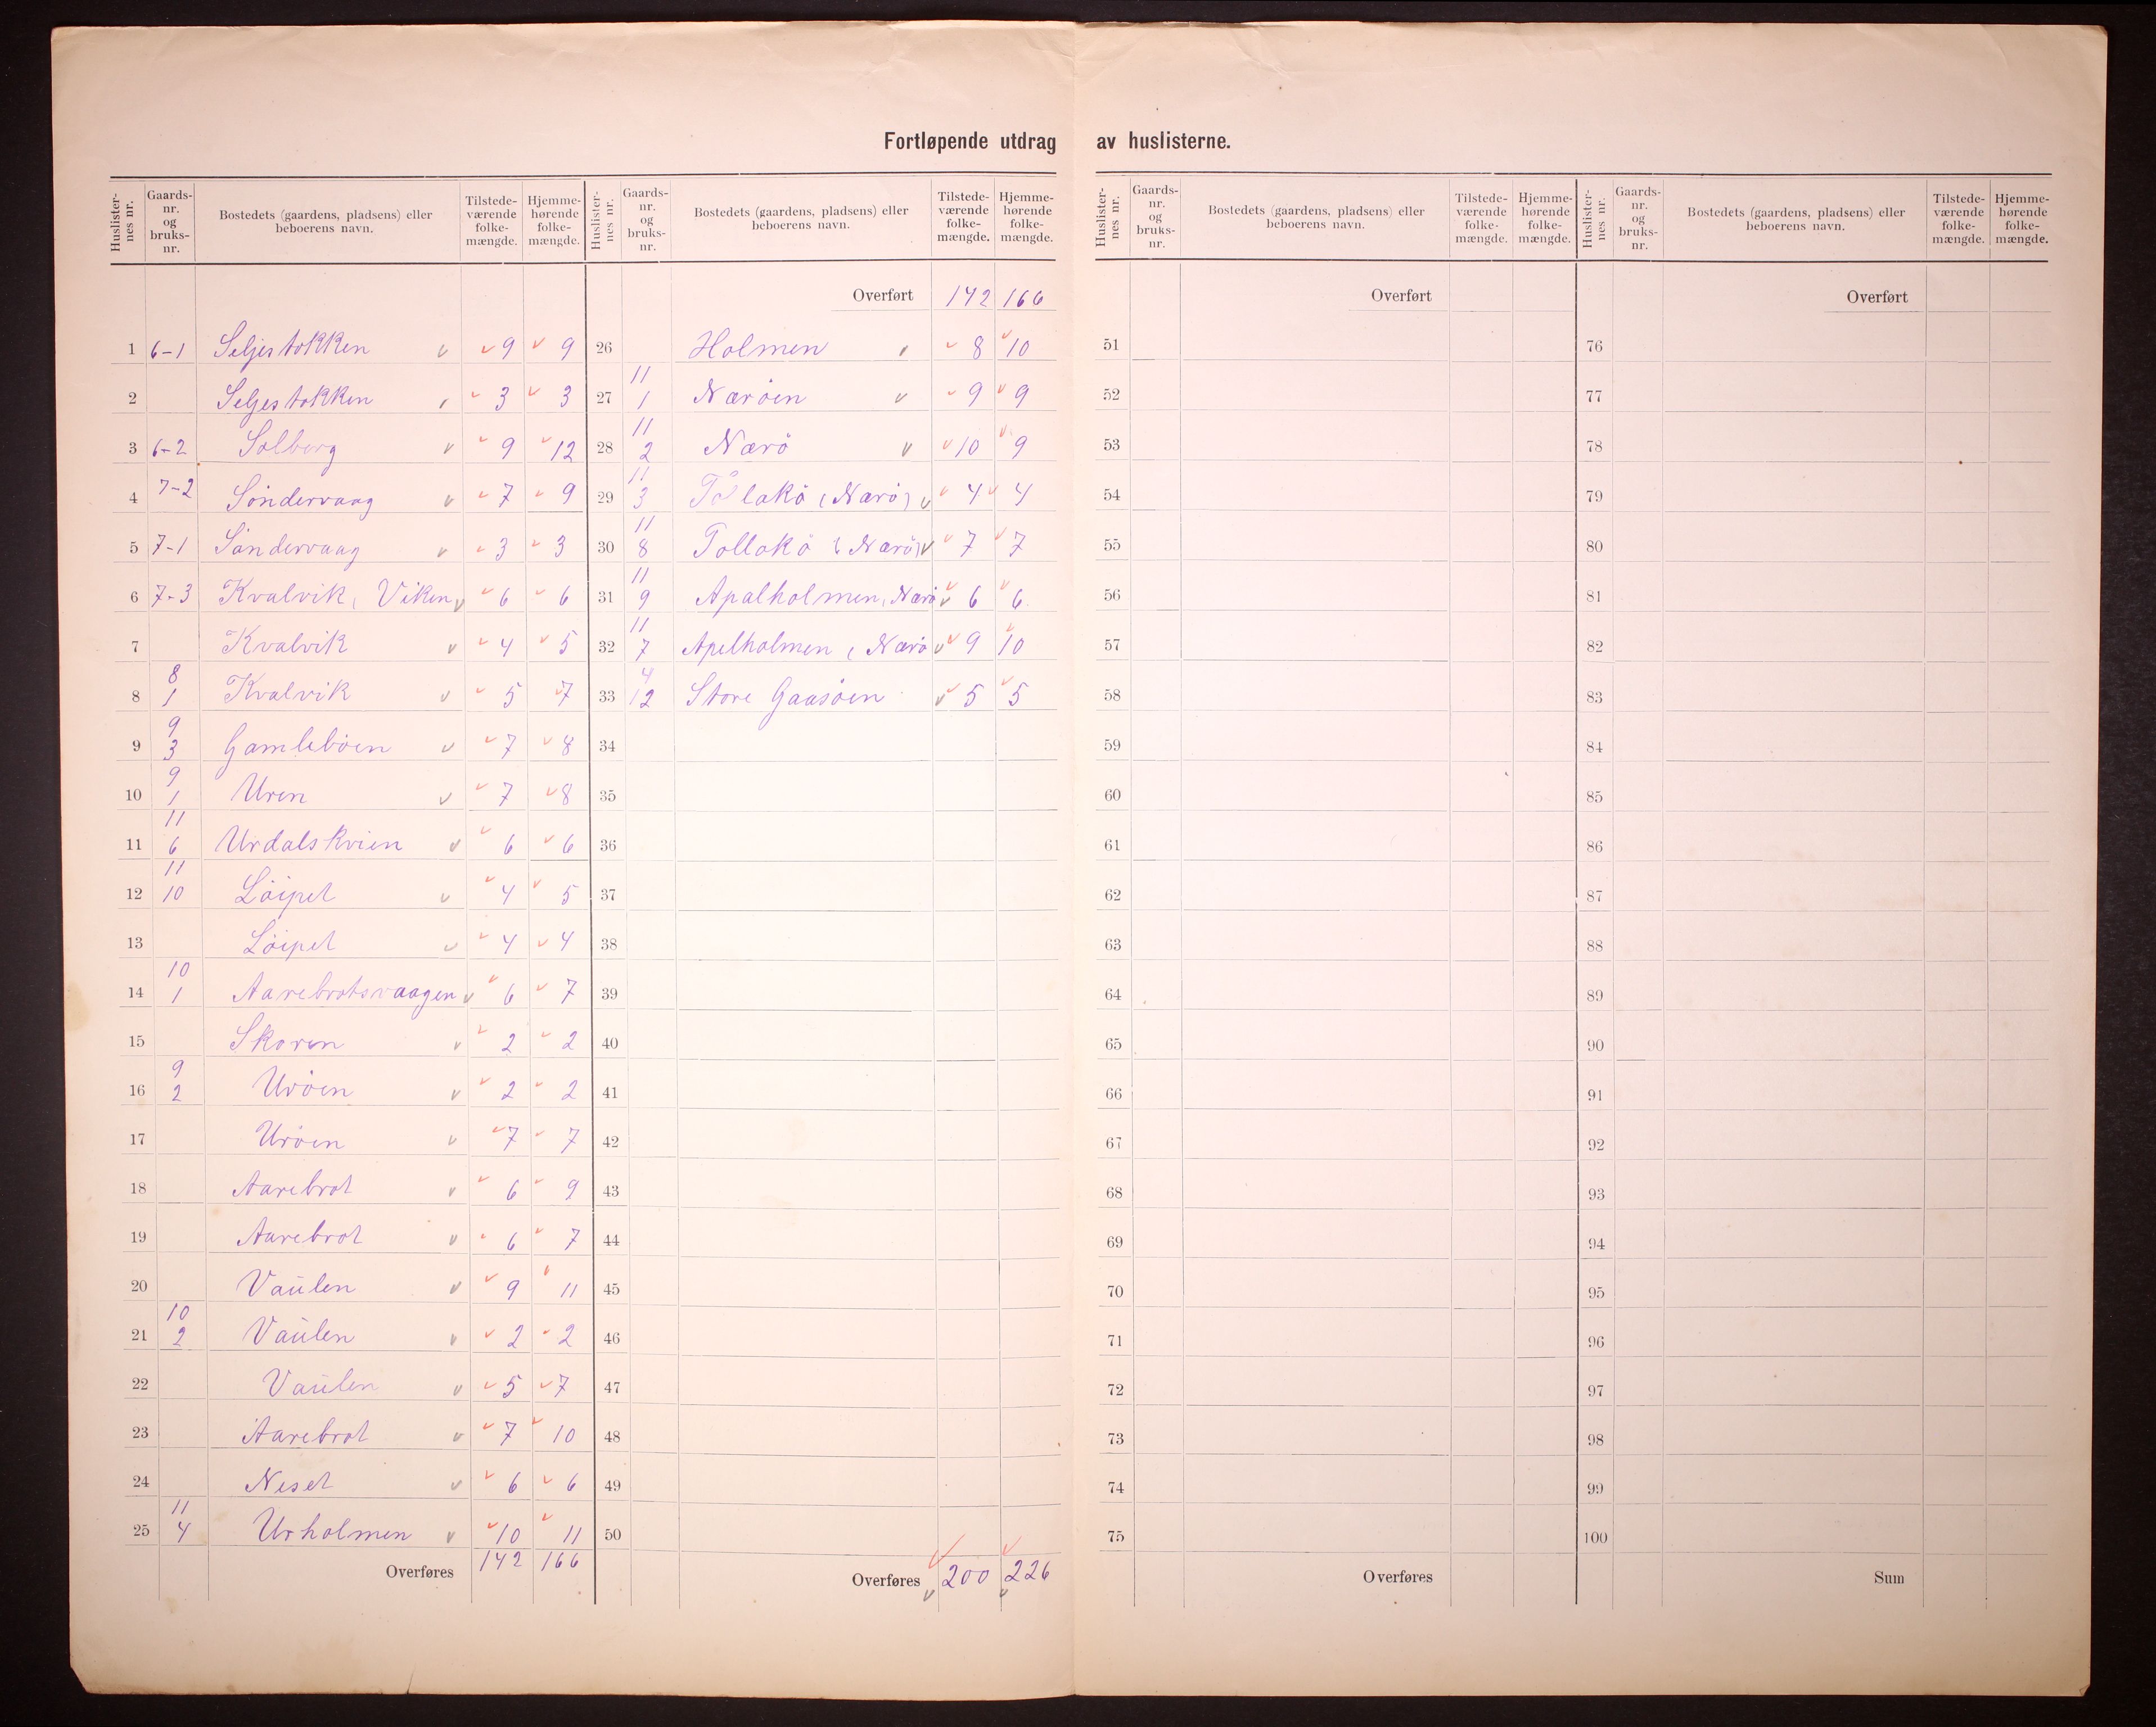 Fortløpende utdrag av huslisterne.
Huslister-nes nr. | Gaards-nr. og bruks-nr. | Bostedets (gaardens, pladsens) eller beboerens navn. | Tilstede-værende folke-mængde. | Hjemme-hørende folke-mængde.
1 6-1 Seljestokken v 9 9
2 Seljestokken v 3 3
3 6-2 Solberg v 9 12
4 7-2 Söndervaag v 7 9
5 7-1 Söndervaag v 3 3
6 7-3 Kvalvik, Viken v 6 6
7 Kvalvik v 4 5
8 8 1 Kvalvik v 5 7
9 9 3 Gamleböen v 7 8
10 9 1 Uren v 7 8
11 11 6 Urdalskvien v 6 6
12 11 10 Löipet v 4 5
13 Löipet v 4 4
14 10 1 Aarebrotsvaagen v 6 7
15 Skoren v 2 2
16 9 2 Uröen v 2 2
17 Uröen v 7 7
18 Aarebrot v 6 9
19 Aarebrot v 6 7
20 Vaülen v 9 11
21 10 2 Vaülen v 2 2
22 Vaülen v 5 7
23 Aarebrot v 7 10
24 Neset v 6 6
25 11 4 Urholmen v 10 11
Overføres 142 166
Huslister-nes nr. | Gaards-nr. og bruks-nr. | Bostedets (gaardens, pladsens) eller beboerens navn. | Tilstede-værende folke-mængde. | Hjemme-hørende folke-mængde.
Overført 142 166
26 Holmen v 8 10
27 11 1 Næröen v 9 9
28 11 2 Nærö v 10 9
29 11 3 (Nærö) v 4 4
30 11 8 Tollakö (Nærö) v 7 7
31 11 9 Apalholmen, Nærö v 6 6
32 11 7 Apelholmen (Nærö v 9 10
33 4 12 Store Gaasöen v 5 5
34
35
36
37
38
39
40
41
42
43
44
45
46
47
48
49
50
Overføres 200 226
Huslister-nes nr. | Gaards-nr. og bruks-nr. | Bostedets (gaardens, pladsens) eller beboerens navn. | Tilstede-værende folke-mængde. | Hjemme-hørende folke-mængde.
Overført
51
52
53
54
55
56
57
58
59
60
61
62
63
64
65
66
67
68
69
70
71
72
73
74
75
Overføres
Huslister-nes nr. | Gaards-nr. og bruks-nr. | Bostedets (gaardens, pladsens) eller beboerens navn. | Tilstede-værende folke-mængde. | Hjemme-hørende folke-mængde.
Overført
76
77
78
79
80
81
82
83
84
85
86
87
88
89
90
91
92
93
94
95
96
97
98
99
100
Sum